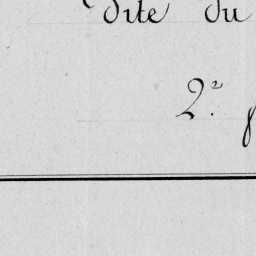 dite du
2.e